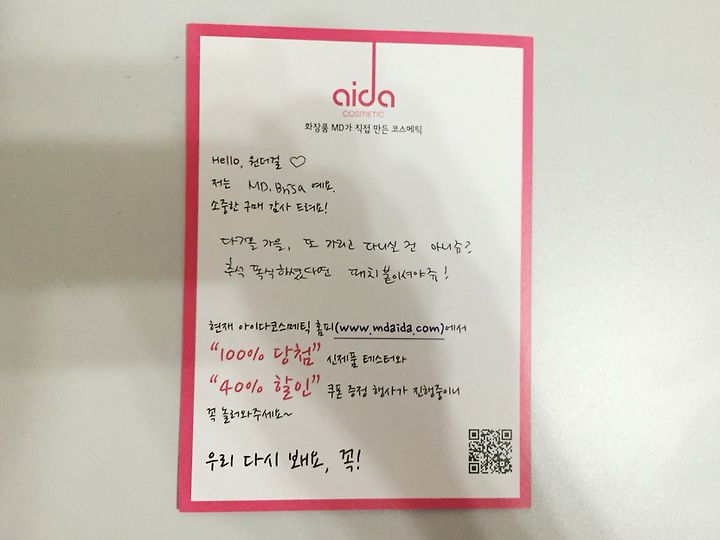 aida
COSMETIC
화장품 MD가 직접 만든 코스메틱
Hello, 원더걸 ♡
저는 MD. Brisa 예요.
소중한 구매 감사 드려요!
가을, 또 가리고 다니실 건 아니쥬?
추석 폭식하셨다면 패치 붙이셔야쥬!
현재 아이다코스메틱 홈피(www.mdaida.com)에서
“100% 당첨” 신제품 테스터와
“40% 할인” 쿠폰 증정 행사가 진행중이니
꼭 놀러와주세요~
우리 다시 봬요, 꼭!